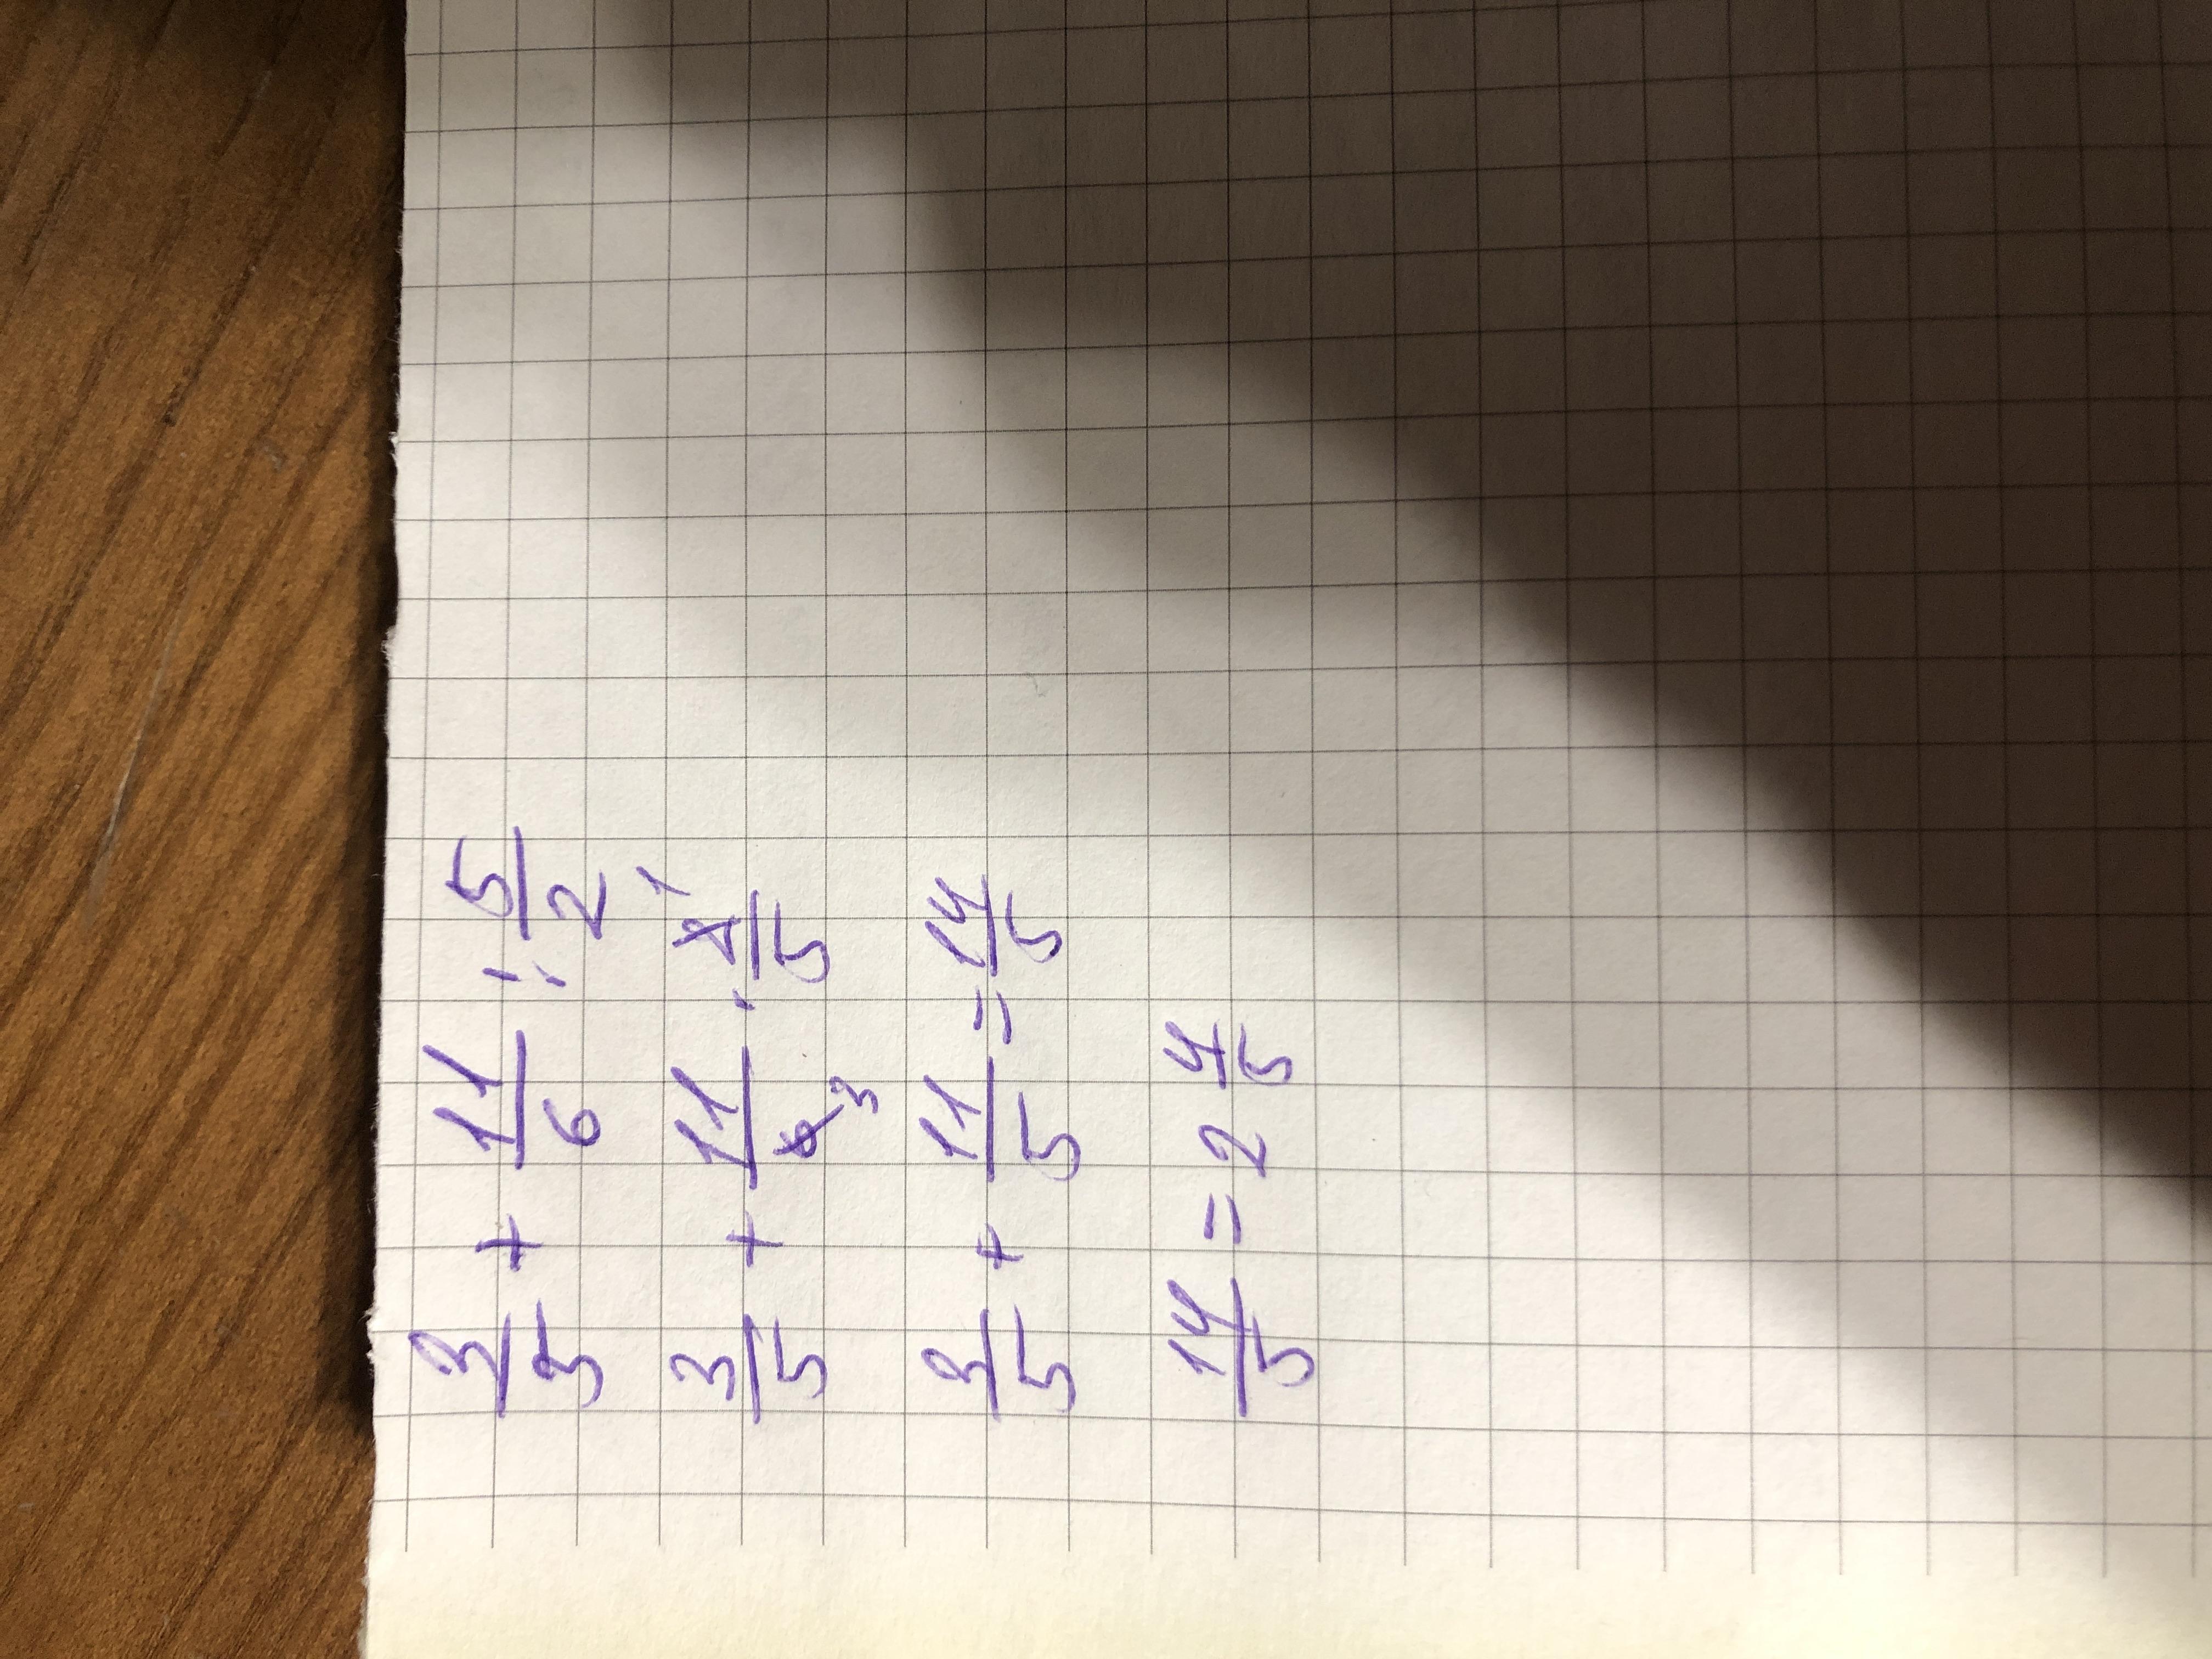 3/5 + 11/6 : 5/2
3/5 + 11/6 3 · 2/5 1
3/5 + 11/5 = 14/5
14/5 = 2 4/5